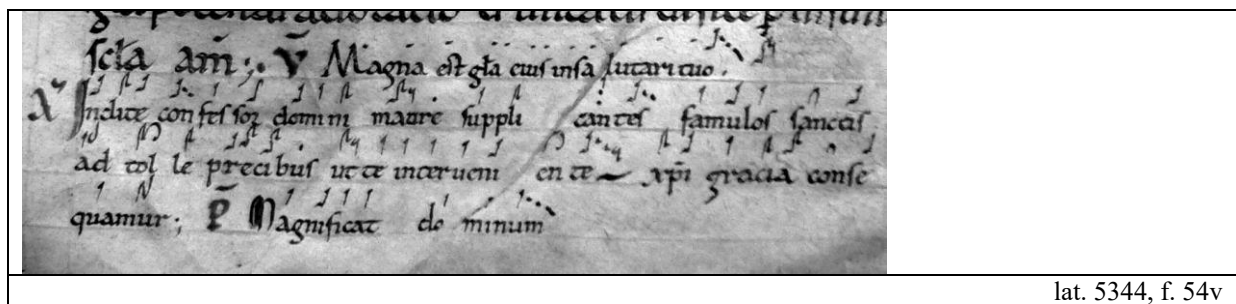 scła am̄ ;. V̄ Magna est gła eius in sa lutari tuo.
Inclite con fes sor domini maure suppli cantes famulos sanctis
ad tol le precibus ut te interueni en te xp̄i gracia conse
quamur; P̄ Magnificat do minum
lat. 5344, f. 54v